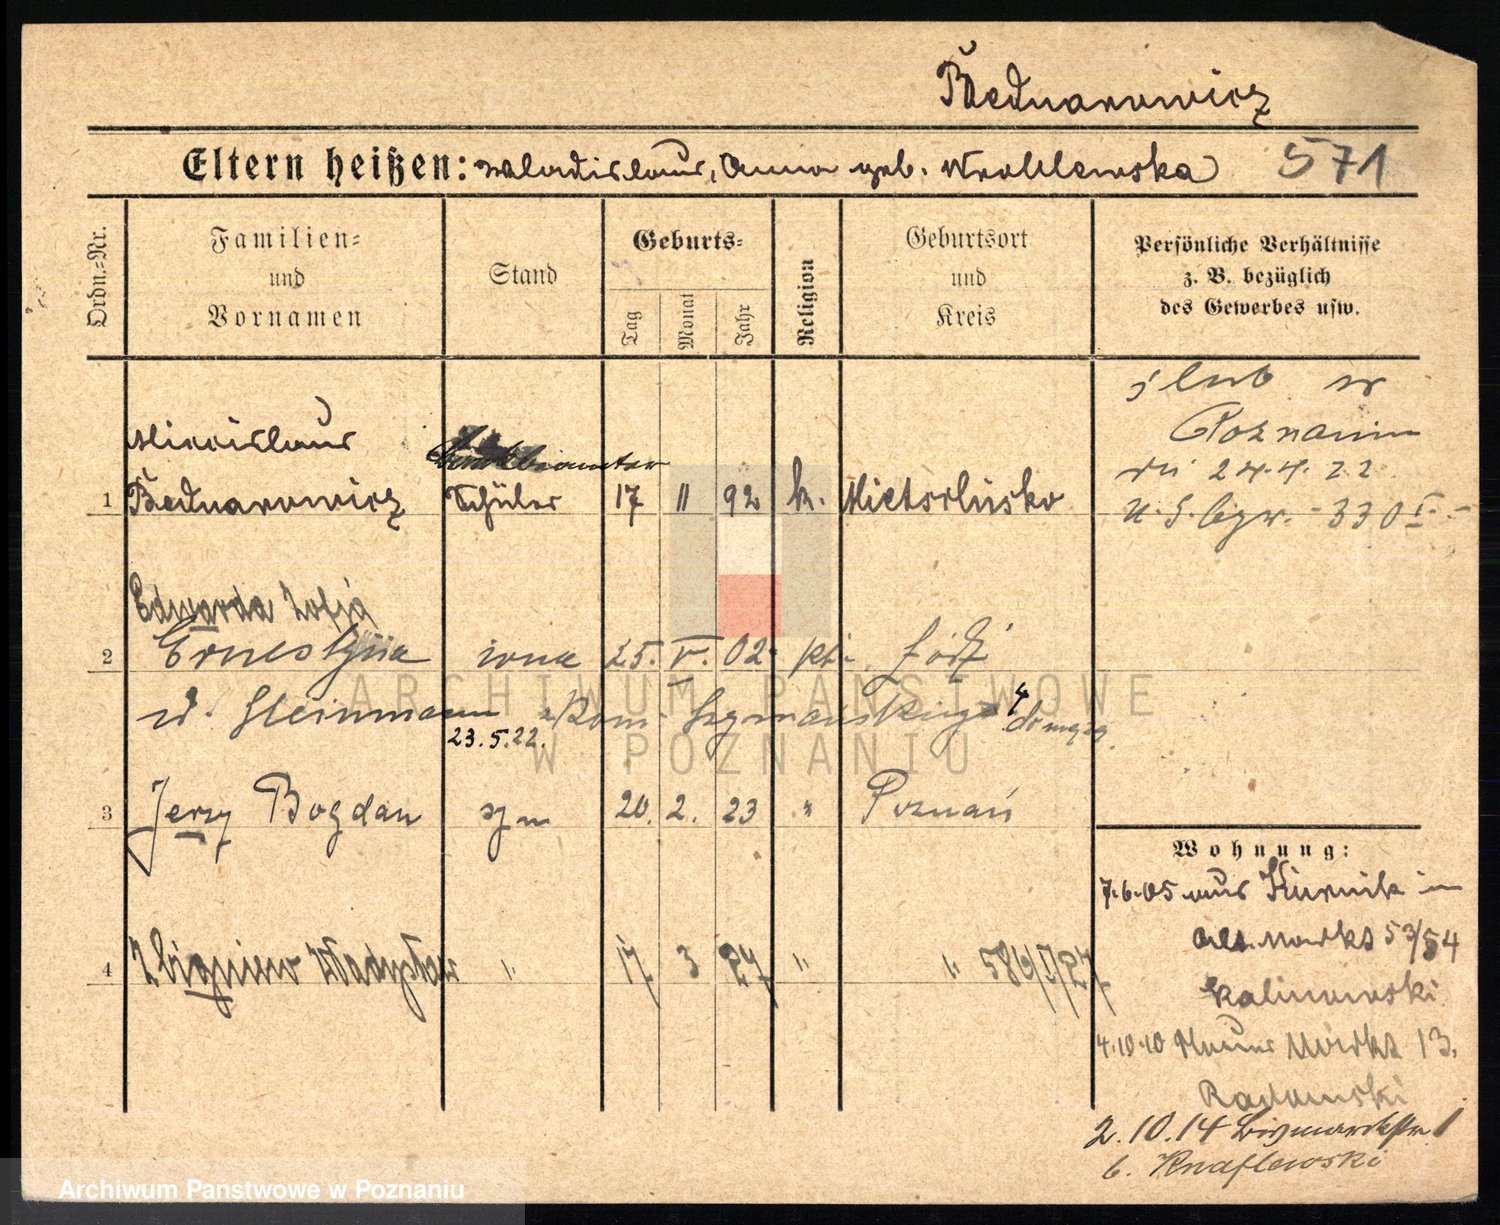 Bednarowicz
Eltern heißen: Wladislaus, Anna geb. Wroblewska 571
Ordn.=Nr.
Familien=
und
Vornamen
Stand
Geburts=
Tag
Monat
Jahr
Religion
Geburtsort
und
Kreis
Persönliche Verhältnisse
z. B. bezüglich
des Gewerbes usw.
Miecislaus
1 Bednarowicz Schüler 17 11 92 k. Mietschisko
ślub w
Poznaniu
24.4.22.
330
Edwarda Zofja
2 Ernestyna żona 25. V. 02. kt. Łódź
z d. Steinmann
23.5.22.
3 Jerzy Bogdan syn 20. 2. 23 " Poznań
4 Zbigniew Władysław " 17 3 27 " " 586/V/27
Wohnung:
7.6.05 aus Kurnik in
Alt. Markt 53/54
Kalinowski
4.10.10 Neuer Markt 13.
Radomski
2.10.14 Bismarckstr. 1
b. Knaflewski
ARCHIWUM PAŃSTWOWE
W POZNANIU
Archiwum Państwowe w Poznaniu